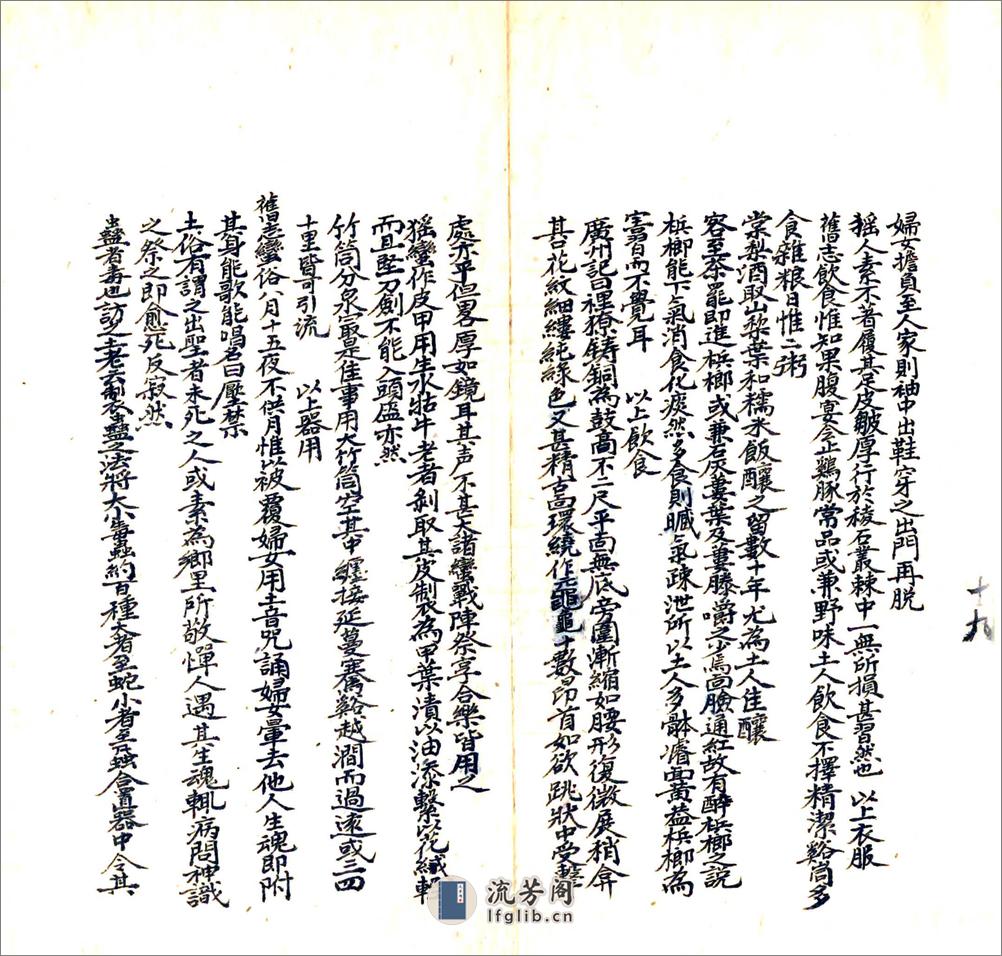 婦女擔負至人家則袖中出鞋穿之出門再脫
猺人素不者履其足皮皺厚行於稜石叢棘中一無所損甚習然也 以上衣服
舊志飲食惟知果腹宴會止鷄豚常品或兼野味土人飲食不擇精潔谿峝多
食雜粮日惟二粥
棠梨酒取山梨葉和糯米飯釀之留數十年尤為土人佳釀
客至茶罷即進梹榔或兼石灰蔞葉及蔞藤嚼之少焉面臉通紅故有醉梹榔之說
梹榔能下氣消食化痰然多食則臟氣疎泄所以土人多體瘠面黃益梹榔為
害習而不覺耳 以上飲食
廣州記曰裡獠鑄銅為鼓高不二尺平面無底旁圍漸縮如腰形復微展稍弇
其口花紋細縷純綠色又甚精古面環繞作黽十數昂首如欲跳狀中受擊
處亦平但畧厚如鏡耳其声不甚大諸蠻戰陣祭享合樂皆用之
猺蠻作皮甲用生水牯牛老者剝取其皮製為甲葉漬以油漆繫以花絨輕
而且堅刀劍不能入頭盔亦然
竹筒分泉最是佳事用大竹筒空其中纏接延蔓騫谿越澗而過遠或三四
十里皆可引流 以上器用
舊志蠻俗八月十五夜不供月惟以被覆婦女用土音咒誦婦女暈去他人生魂即附
其身能歌能唱名曰壓禁
土俗有謂之出聖者未死之人或素為鄉里所敬憚人遇其生魂輒病問神識
之祭之即愈死反寂然
蠱者毒也訪之土老云製蠱之法將大小毒蟲約百種大者至蛇小者至蝨合置器中令其
十九
流芳阁
lfglib.cn